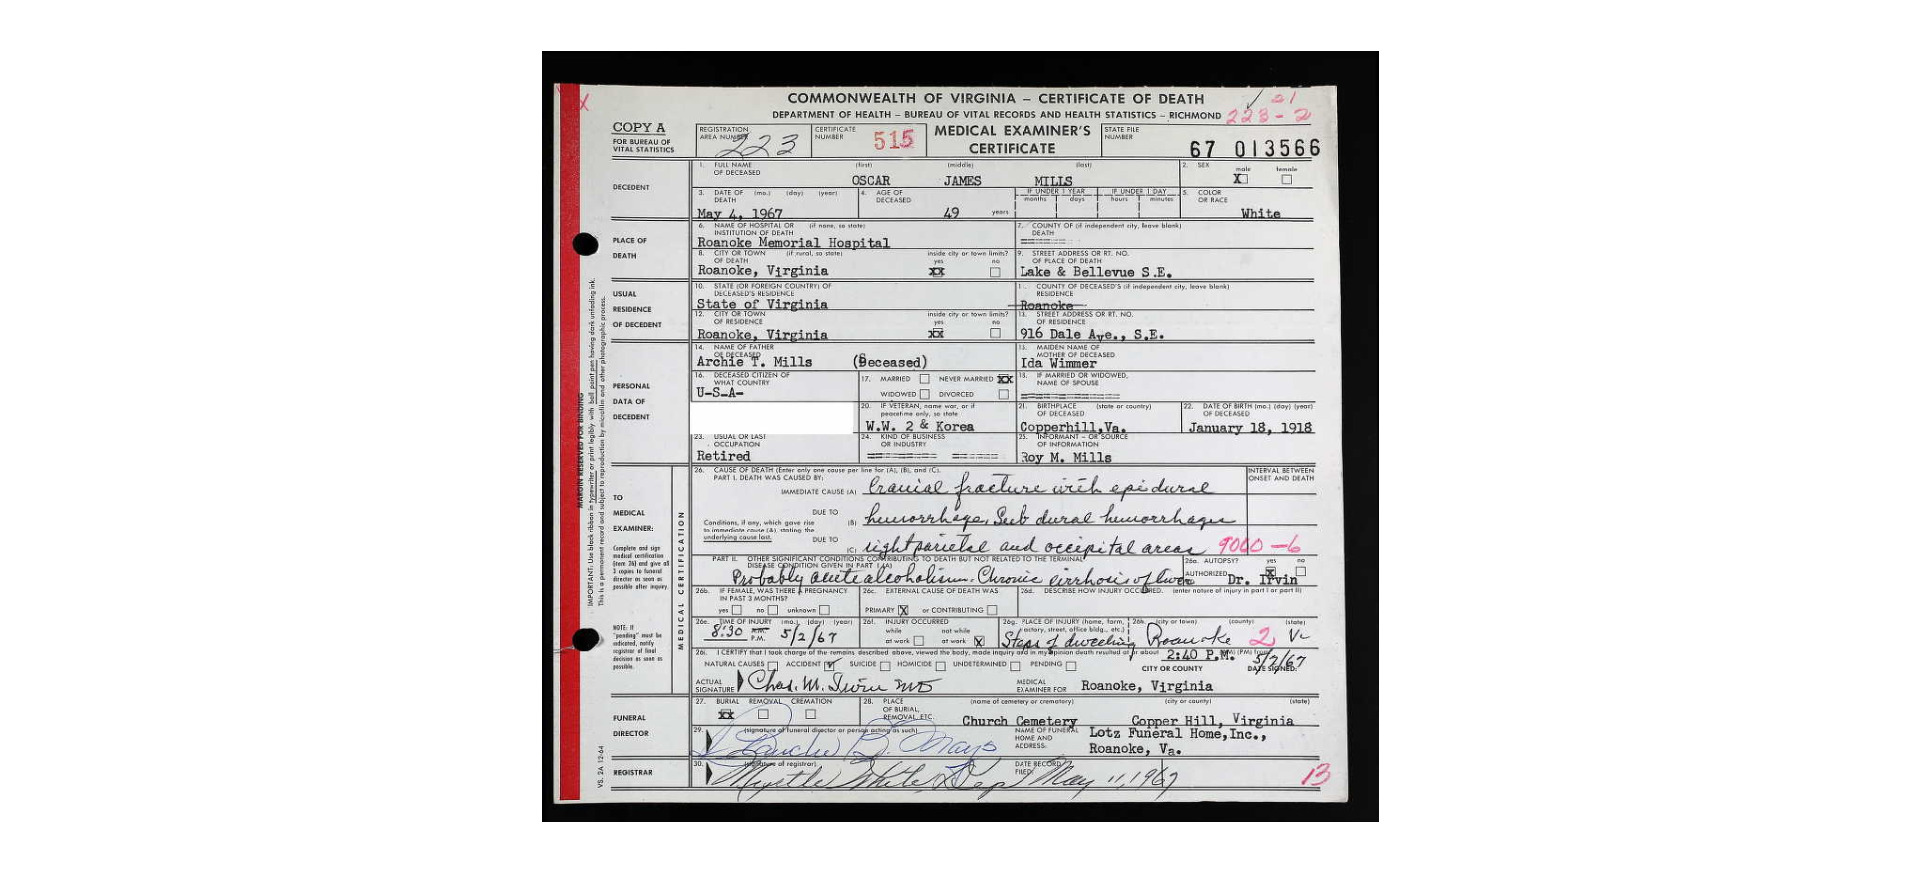 COMMONWEALTH OF VIRGINIA – CERTIFICATE OF DEATH
DEPARTMENT OF HEALTH – BUREAU OF VITAL RECORDS AND HEALTH STATISTICS – RICHMOND
21
223-2
X
COPY A
FOR BUREAU OF
VITAL STATISTICS
REGISTRATION
AREA NUMBER 223
CERTIFICATE
NUMBER 515
MEDICAL EXAMINER'S
CERTIFICATE
STATE FILE
NUMBER
67 013566
DECEDENT
1. FULL NAME
OF DECEASED
(first) (middle) (last)
OSCAR JAMES MILLS
2. SEX
male female
X
3. DATE OF (mo.) (day) (year)
DEATH
May 4, 1967
4. AGE OF
DECEASED
49 years
IF UNDER 1 YEAR IF UNDER 1 DAY
months days hours minutes
5. COLOR
OR RACE
White
PLACE OF
DEATH
6. NAME OF HOSPITAL OR (if none, so state)
INSTITUTION OF DEATH
Roanoke Memorial Hospital
7. COUNTY OF (if independent city, leave blank)
DEATH
8. CITY OR TOWN (if rural, so state)
OF DEATH
Roanoke, Virginia
inside city or town limits?
yes no
XX
9. STREET ADDRESS OR RT. NO.
OF PLACE OF DEATH
Lake & Bellevue S.E.
USUAL
RESIDENCE
OF DECEDENT
10. STATE (OR FOREIGN COUNTRY) OF
DECEASED'S RESIDENCE
State of Virginia
COUNTY OF DECEASED'S (if independent city, leave blank)
RESIDENCE
Roanoke
12. CITY OR TOWN
OF RESIDENCE
Roanoke, Virginia
inside city or town limits?
yes no
XX
13. STREET ADDRESS OR RT. NO.
OF RESIDENCE
916 Dale Ave., S.E.
PERSONAL
DATA OF
DECEDENT
14. NAME OF FATHER
OF DECEASED
Archie T. Mills (Deceased)
15. MAIDEN NAME OF
MOTHER OF DECEASED
Ida Wimmer
16. DECEASED CITIZEN OF
WHAT COUNTRY
U-S-A-
17. MARRIED NEVER MARRIED XX
WIDOWED DIVORCED
18. IF MARRIED OR WIDOWED,
NAME OF SPOUSE
20. IF VETERAN, name war, or if
peacetime only, so state
W.W. 2 & Korea
21. BIRTHPLACE (state or country)
OF DECEASED
Copperhill,Va.
22. DATE OF BIRTH (mo.) (day) (year)
OF DECEASED
January 18, 1918
23. USUAL OR LAST
OCCUPATION
Retired
24. KIND OF BUSINESS
OR INDUSTRY
25. INFORMANT – OR SOURCE
OF INFORMATION
Roy M. Mills
MARGIN RESERVED FOR BINDING
IMPORTANT: Use black ribbon in typewriter or print legibly with ball point pen having dark unfading ink.
This is a permanent record and subject to reproduction by microfilm and other photographic process.
TO
MEDICAL
EXAMINER:
Complete and sign
medical certification
(item 26) and give all
3 copies to funeral
director as soon as
possible after inquiry.
NOTE: If
"pending" must be
indicated, notify
registrar of final
decision as soon as
possible.
MEDICAL CERTIFICATION
26. CAUSE OF DEATH (Enter only one cause per line for (A), (B), and (C).
PART I. DEATH WAS CAUSED BY:
INTERVAL BETWEEN
ONSET AND DEATH
IMMEDIATE CAUSE (A) Cranial fracture with epidural
Conditions, if any, which gave rise
to immediate cause (A), stating the
underlying cause last.
DUE TO
(B) hemorrhage, Sub dural hemorrhages
DUE TO
(C) right parietal and occipital areas 9000-6
PART II. OTHER SIGNIFICANT CONDITIONS CONTRIBUTING TO DEATH BUT NOT RELATED TO THE TERMINAL
DISEASE CONDITION GIVEN IN PART I (A)
Probably acute alcoholism. Chronic cirrhosis of liver
26a. AUTOPSY? yes no
AUTHORIZED X Dr. Irvin
26b. IF FEMALE, WAS THERE A PREGNANCY
IN PAST 3 MONTHS?
yes no unknown
26c. EXTERNAL CAUSE OF DEATH WAS
PRIMARY X or CONTRIBUTING
26d. DESCRIBE HOW INJURY OCCURRED. (enter nature of injury in part I or part II)
26e. TIME OF INJURY (mo.) (day) (year)
8:30 A.M. P.M. 5/2/67
26f. INJURY OCCURRED
while not while
at work at work X
26g. PLACE OF INJURY (home, farm,
factory, street, office bldg., etc.)
Steps of dwelling
26h. (city or town) (county) (state)
Roanoke 2 Va
26i. I CERTIFY that I took charge of the remains described above, viewed the body, made inquiry and in my opinion death resulted at or about 2:40 P.M.
NATURAL CAUSES ACCIDENT SUICIDE HOMICIDE UNDETERMINED PENDING
CITY OR COUNTY
5/7/67
DATE SIGNED:
ACTUAL
SIGNATURE
Chas. M. Irvin MD
MEDICAL
EXAMINER FOR
Roanoke, Virginia
FUNERAL
DIRECTOR
27. BURIAL REMOVAL CREMATION
XX
28. PLACE
OF BURIAL,
REMOVAL, ETC.
(name of cemetery or crematory) (city or county) (state)
Church Cemetery Copper Hill, Virginia
29. (signature of funeral director or person acting as such)
B. Mays
NAME OF FUNERAL
HOME AND
ADDRESS:
Lotz Funeral Home,Inc.,
Roanoke, Va.
REGISTRAR
30. (signature of registrar)
Myrtle White, Dep
DATE RECORD
FILED:
May 11, 1967
13
VS. 2A 12-64